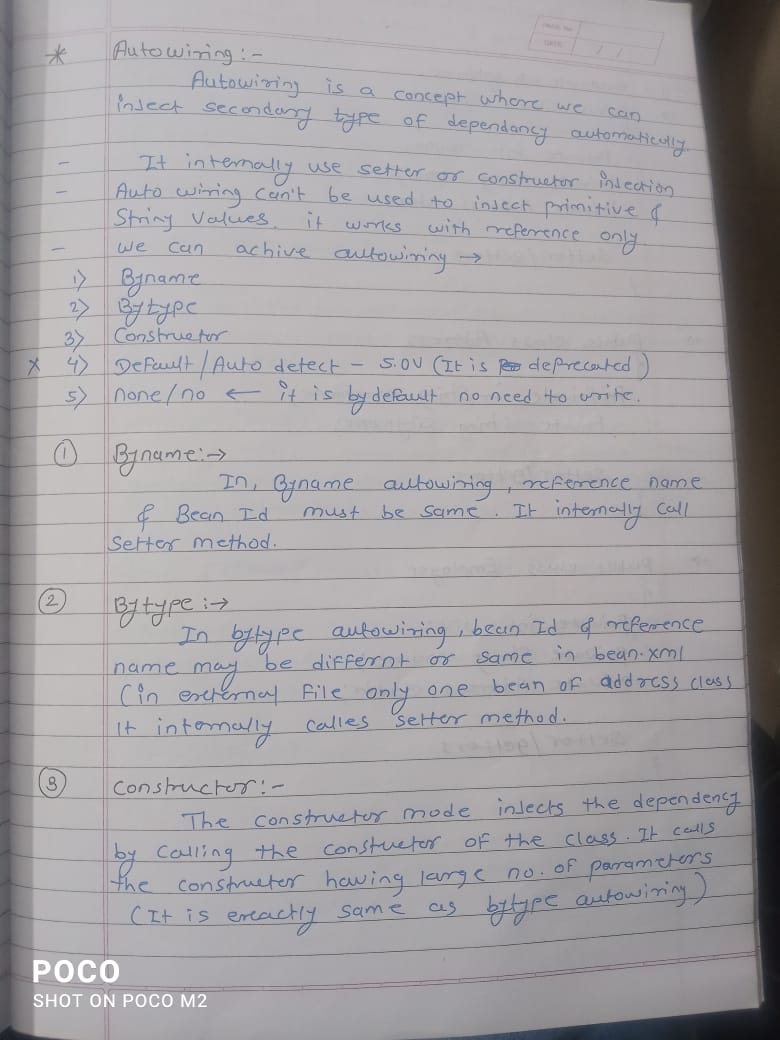 PAGE No.
DATE / /
* Autowiring:-
Autowiring is a concept where we can
inject secondary type of dependancy automatically.
- It internally use setter or constructor injection
- Auto wiring can't be used to inject primitive &
String values. it works with reference only.
- we can achive autowiring →
1) Byname
2) Bytype
3) Constructor
x 4) Default/Auto detect - 5.0V (It is deprecated)
5) none/no ← it is bydefault no need to write.
① Byname:→
In, Byname autowiring, reference name
& Bean Id must be same. It internally call
Setter method.
② Bytype:→
In bytype autowiring, bean Id & reference
name may be differnt or same in bean.xml
(in external File only one bean of address class
It internally calles setter method.
③ Constructor:-
The constructor mode injects the dependency
by calling the constructor of the class. It calls
the constructer having large no. of parameters
(It is exactly same as bytype autowiring)
POCO
SHOT ON POCO M2